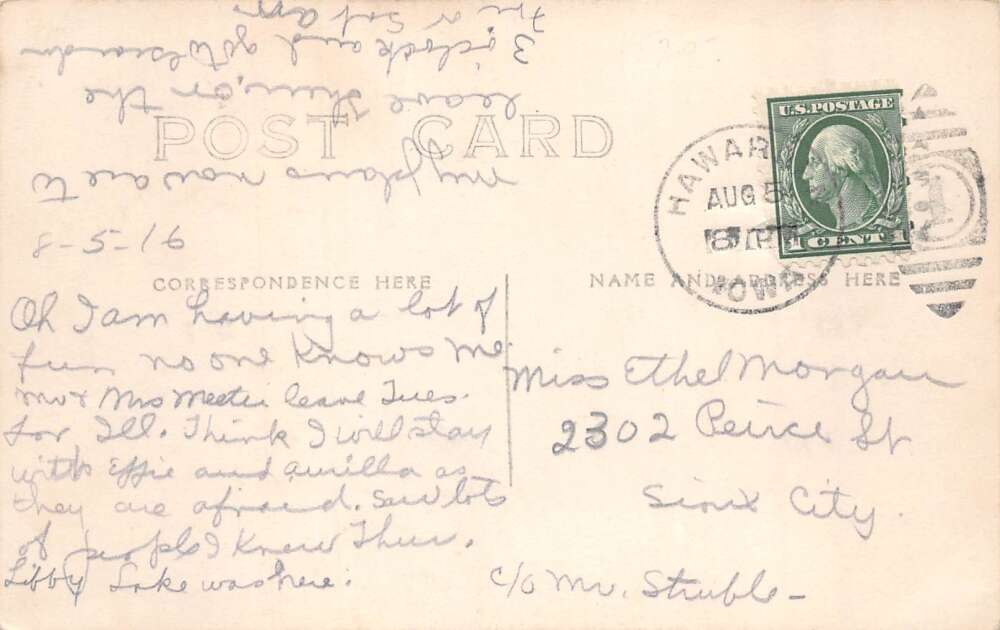 8-5-16
POST CARD
CORRESPONDENCE HERE
Oh I am having a lot of
fun no one knows me.
Mr & Mrs Meeter leave Tues.
for Ill. Think I will stay
with Effie and Aurilla as
they are afraid. Saw lots
of people I knew Thur.
Libby Lake was here.
my plans now are to
leave then, on the
3 o'clock and go to
Fri or Sat
NAME AND ADDRESS HERE
HAWAR
AUG 5
8 P
IOWA
U.S. POSTAGE
1 CENT 1
Miss Ethel Morgan
2302 Peirce St
Sioux City.
c/o Mr. Struble-